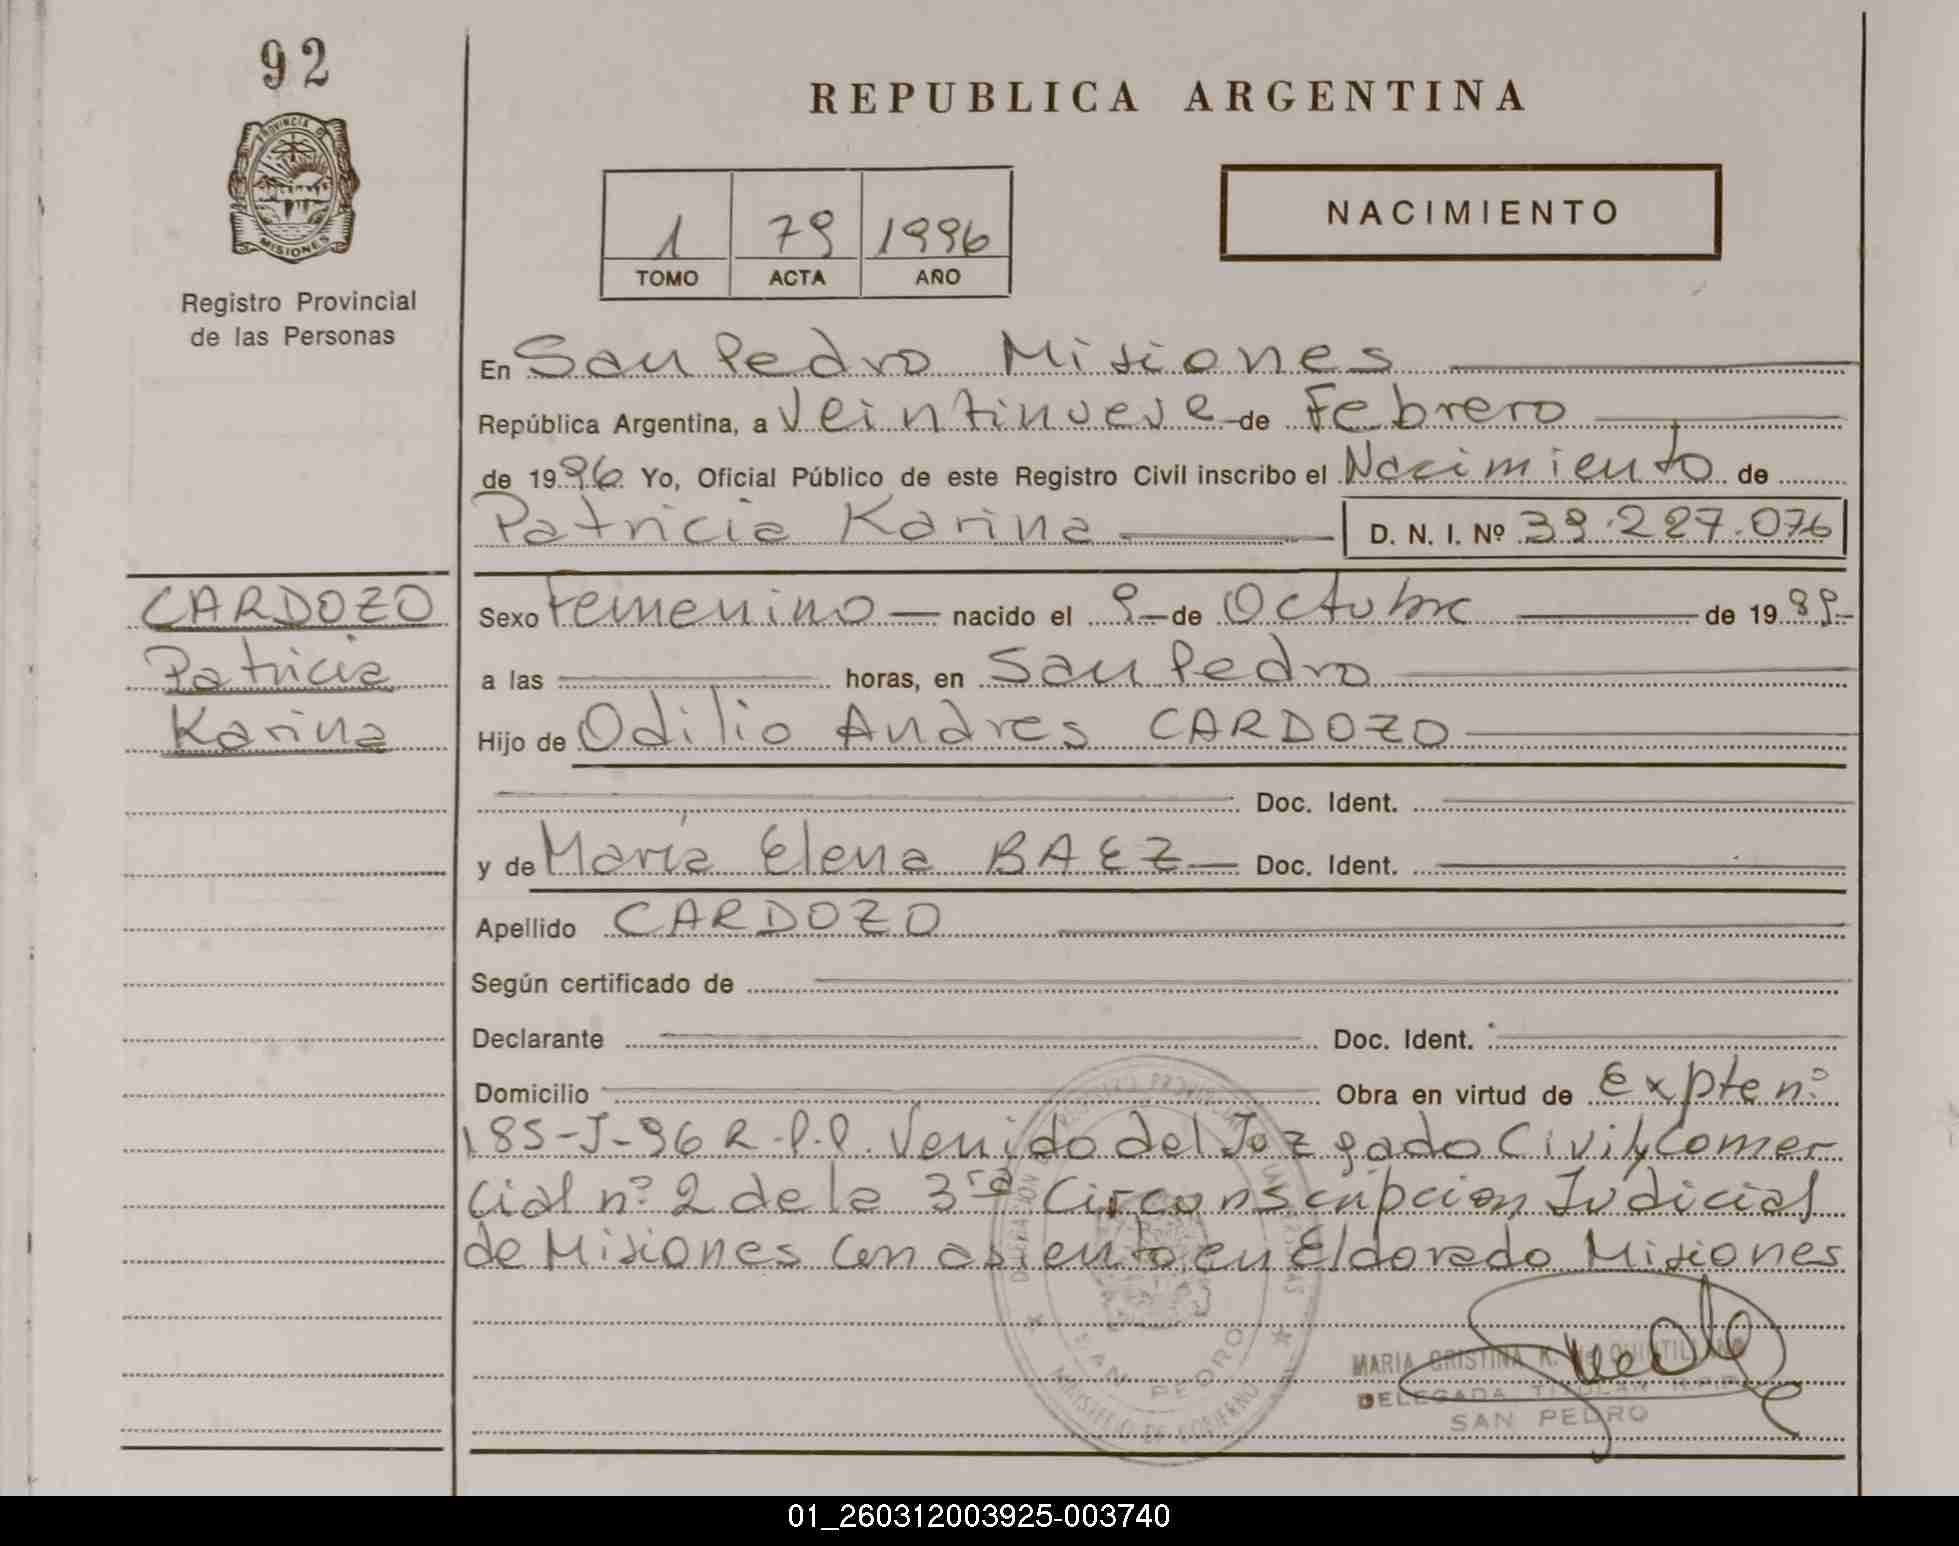 92
REPUBLICA ARGENTINA
PROVINCIA DE
MISIONES
Registro Provincial
de las Personas
1 79 1996
TOMO ACTA AÑO
NACIMIENTO
En San Pedro Misiones
República Argentina, a Veintinueve de Febrero
de 1996 Yo, Oficial Público de este Registro Civil inscribo el Nacimiento de
Patricia Karina D. N. I. Nº 39.227.076
CARDOZO
Patricia
Karina
Sexo Femenino nacido el 9 de Octubre de 1989
a las horas, en San Pedro
Hijo de Odilio Andres CARDOZO
Doc. Ident.
y de María Elena BAEZ Doc. Ident.
Apellido CARDOZO
Según certificado de
Declarante Doc. Ident.
Domicilio Obra en virtud de Expte nº
185-J-96 R.P.P. Venido del Juzgado Civil y Comer
cial nº 2 de la 3ra Circunscripcion Judicial
de Misiones con asiento en Eldorado Misiones
SAN PEDRO
MINISTERIO DE GOBIERNO
MARIA CRISTINA K. de
DELEGADA TITULAR R.P.P.
SAN PEDRO
01_260312003925-003740